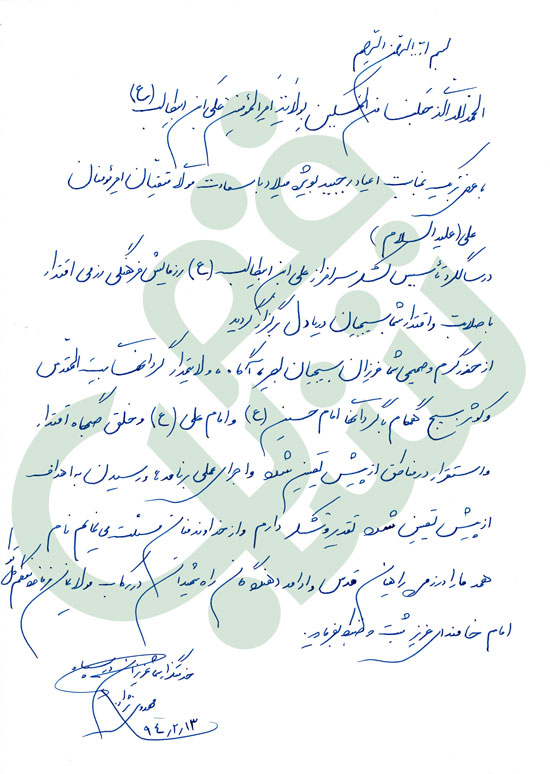 بسم الله الرحمن الرحیم
الحمدلله الذی جعلنا من المتمسکین بولایة امیرالمؤمنین علی ابن ابیطالب (ع)
با عرض تبریک بمناسبت اعیاد رجبیه بویژه میلاد با سعادت مولای متقیان امیرمؤمنان
علی (علیه السلام)
در سالگرد تأسیس لشکر سرافراز علی ابن ابیطالب (ع) رزمایش فرهنگی رزمی اقتدار
با صلابت و اقتدار شما بسیجیان دریادل برگزار گردید
از حضور گرم و صمیمی شما عزیزان بسیجیان بصیر، آگاه، ولایتمدار گردانهای بیت المقدس
و کوثر بسیج گمنام با گردانهای امام حسین (ع) و امام علی (ع) و خلق صحنه اقتدار
و استقرار در مناطق از پیش تعیین شده و اجرای عملی برنامه ها و رسیدن به اهداف
از پیش تعیین شده تقدیر و تشکر دارم و از خداوند منان مسئلت می نمایم نام
همه ما را در زمره راهیان قدس و ادامه دهندگان راه شهیدان در رکاب مولایمان
امام خامنه ای عزیز ثبت و ضبط بفرماید.
خدمتگزار شما عزیزان
مهدوی نژاد
۹۴/۲/۱۳